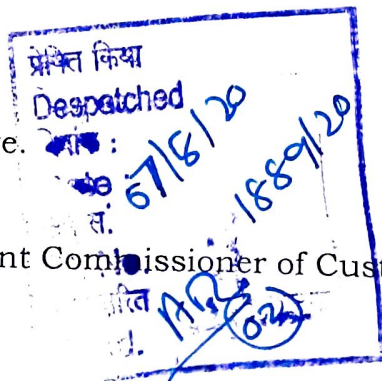 प्रेषित किया
Despatched
e.
07/8/20
1889/20
सं.
nt Commissioner of Cust